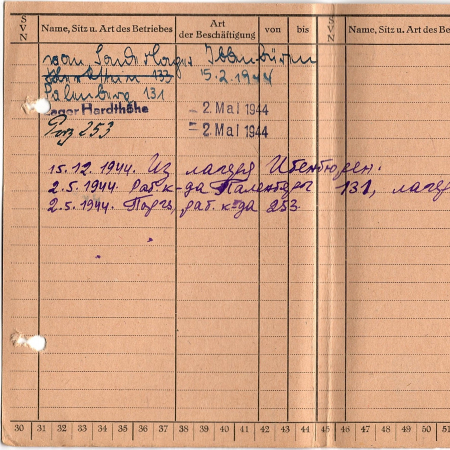 SVN Name, Sitz u. Art des Betriebes Art der Beschäftigung von bis SVN Name, Sitz u. Art des Be
von Sonderlager Ibbenbüren
133 15.2.1944
Palenberg 131
Lager Hardthöhe - 2. Mai 1944
Porz 253 = 2. Mai 1944
15.12.1944. Из лагеря Ибенбюрен.
2.5.1944. Раб. к-да Паленберг 131, лагер
2.5.1944. Порц, раб. к-да 253.
30 31 32 33 34 35 36 37 38 39 40 41 42 43 44 45 46 47 48 49 50 51